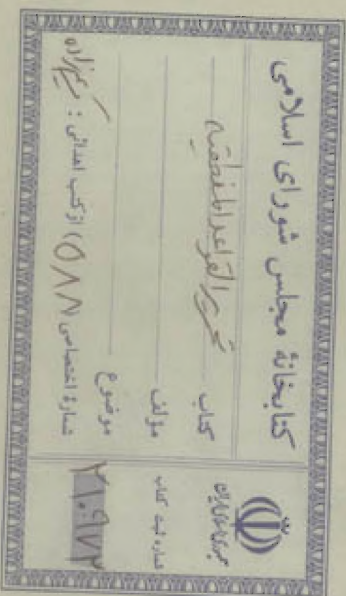 کتابخانهٔ مجلس شورای اسلامی
کتاب تحریر القواعد المنطقیه
مؤلف
موضوع
شمارهٔ اختصاصی (۵۸۸) از کتب اهدائی :
جمهوری اسلامی ایران
شماره ثبت کتاب
۲۱۰۹۷۳